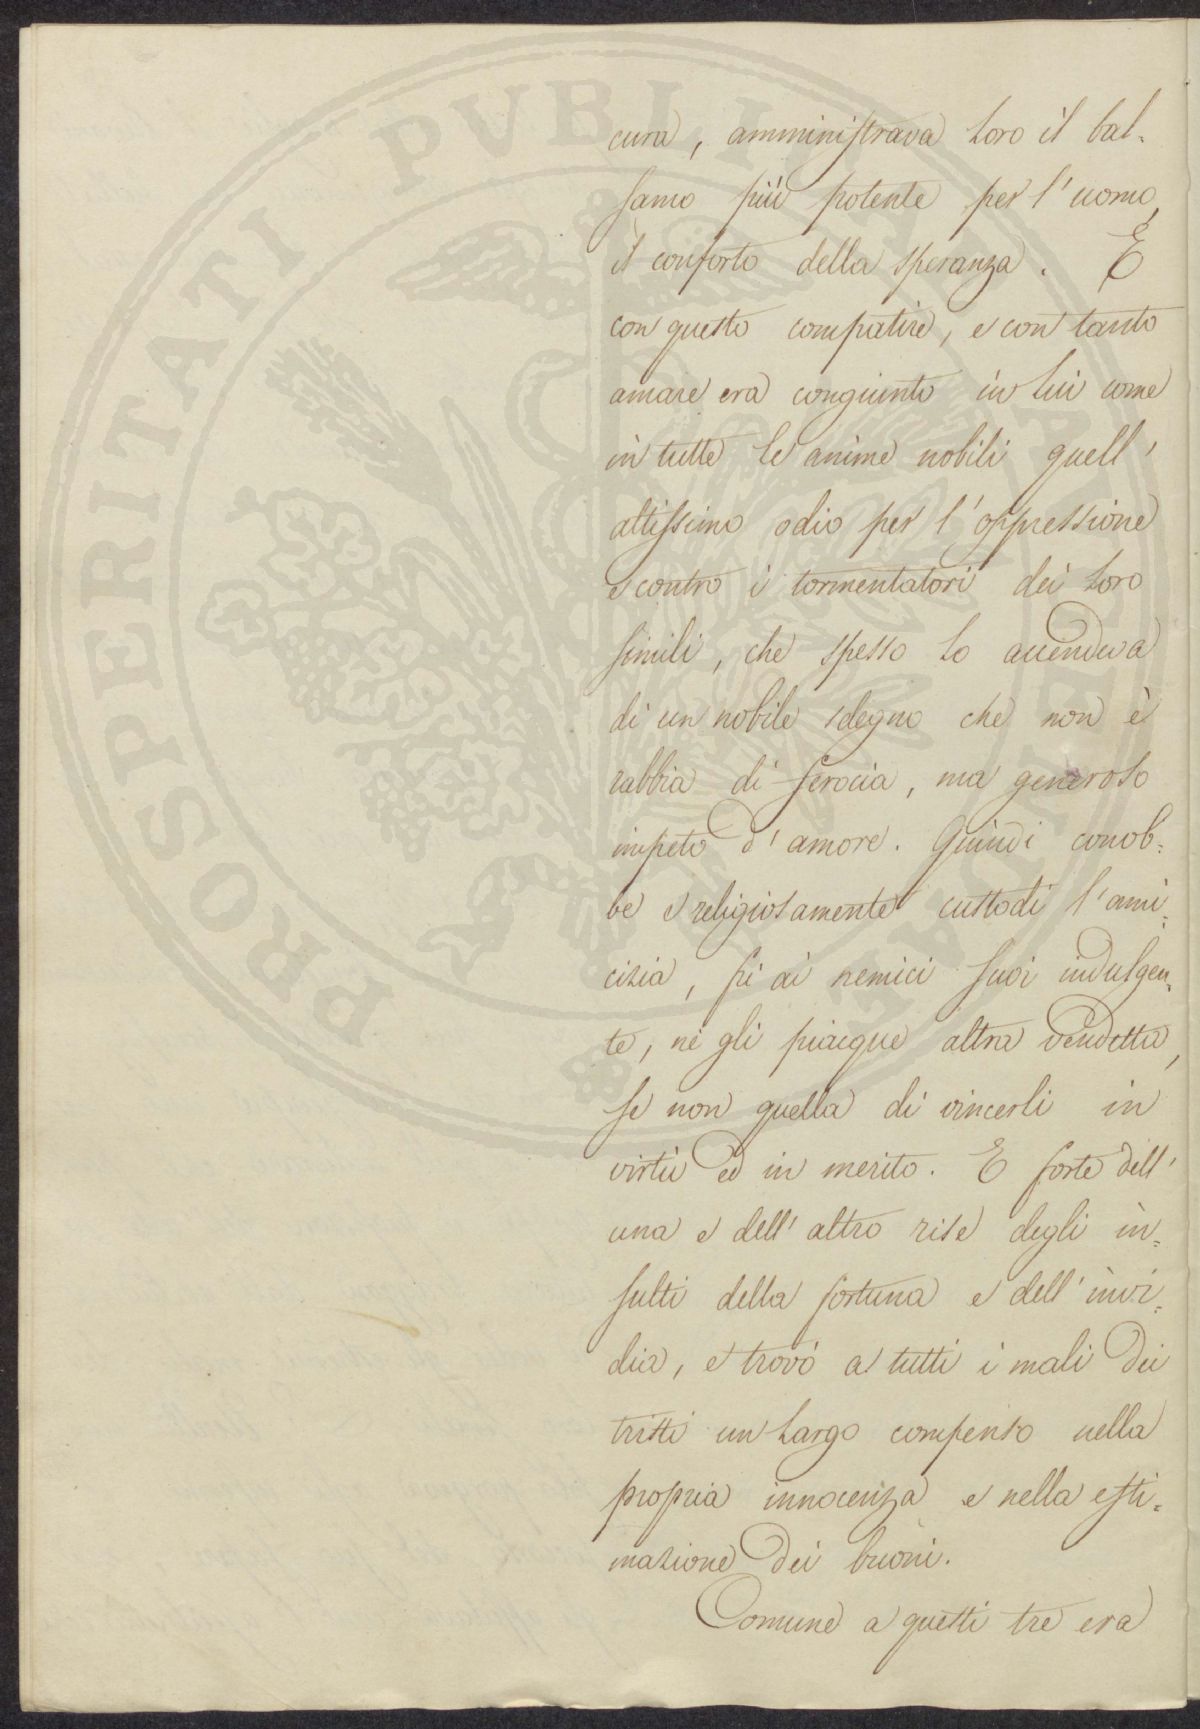 cura, amministrava loro il bal=
samo più potente per l'uomo,
il conforto della speranza. E
con questo compatire, e con tanto
amare era congiunto in lui come
in tutte le anime nobili quell'
altissimo odio per l'oppressione
e contro i tormentatori dei loro
simili, che spesso lo accendeva
di un nobile sdegno che non è
rabbia di ferocia, ma generoso
impeto d'amore. Quindi conob=
be e religiosamente custodì l'ami=
cizia, fù ai nemici suoi indulgen=
te, nè gli piacque altra vendetta,
se non quella di vincerli in
virtù ed in merito. E forte dell'
una e dell'altro rise degli in=
sulti della fortuna e dell'invi=
dia, e trovò a tutti i mali dei
tristi un largo compenso nella
propria innocenza e nella esti=
mazione dei buoni.
Comune a questi tre era
PROSPERITATI PVBLI